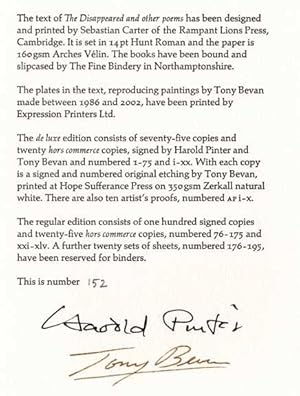 The text of The Disappeared and other poems has been designed
and printed by Sebastian Carter of the Rampant Lions Press,
Cambridge. It is set in 14pt Hunt Roman and the paper is
160gsm Arches Vélin. The books have been bound and
slipcased by The Fine Bindery in Northamptonshire.
The plates in the text, reproducing paintings by Tony Bevan
made between 1986 and 2002, have been printed by
Expression Printers Ltd.
The de luxe edition consists of seventy-five copies and
twenty hors commerce copies, signed by Harold Pinter and
Tony Bevan and numbered 1-75 and i-xx. With each copy
is a signed and numbered original etching by Tony Bevan,
printed at Hope Sufferance Press on 350gsm Zerkall natural
white. There are also ten artist's proofs, numbered AP i-x.
The regular edition consists of one hundred signed copies
and twenty-five hors commerce copies, numbered 76-175 and
xxi-xlv. A further twenty sets of sheets, numbered 176-195,
have been reserved for binders.
This is number 152
Harold Pinter
Tony Bevan